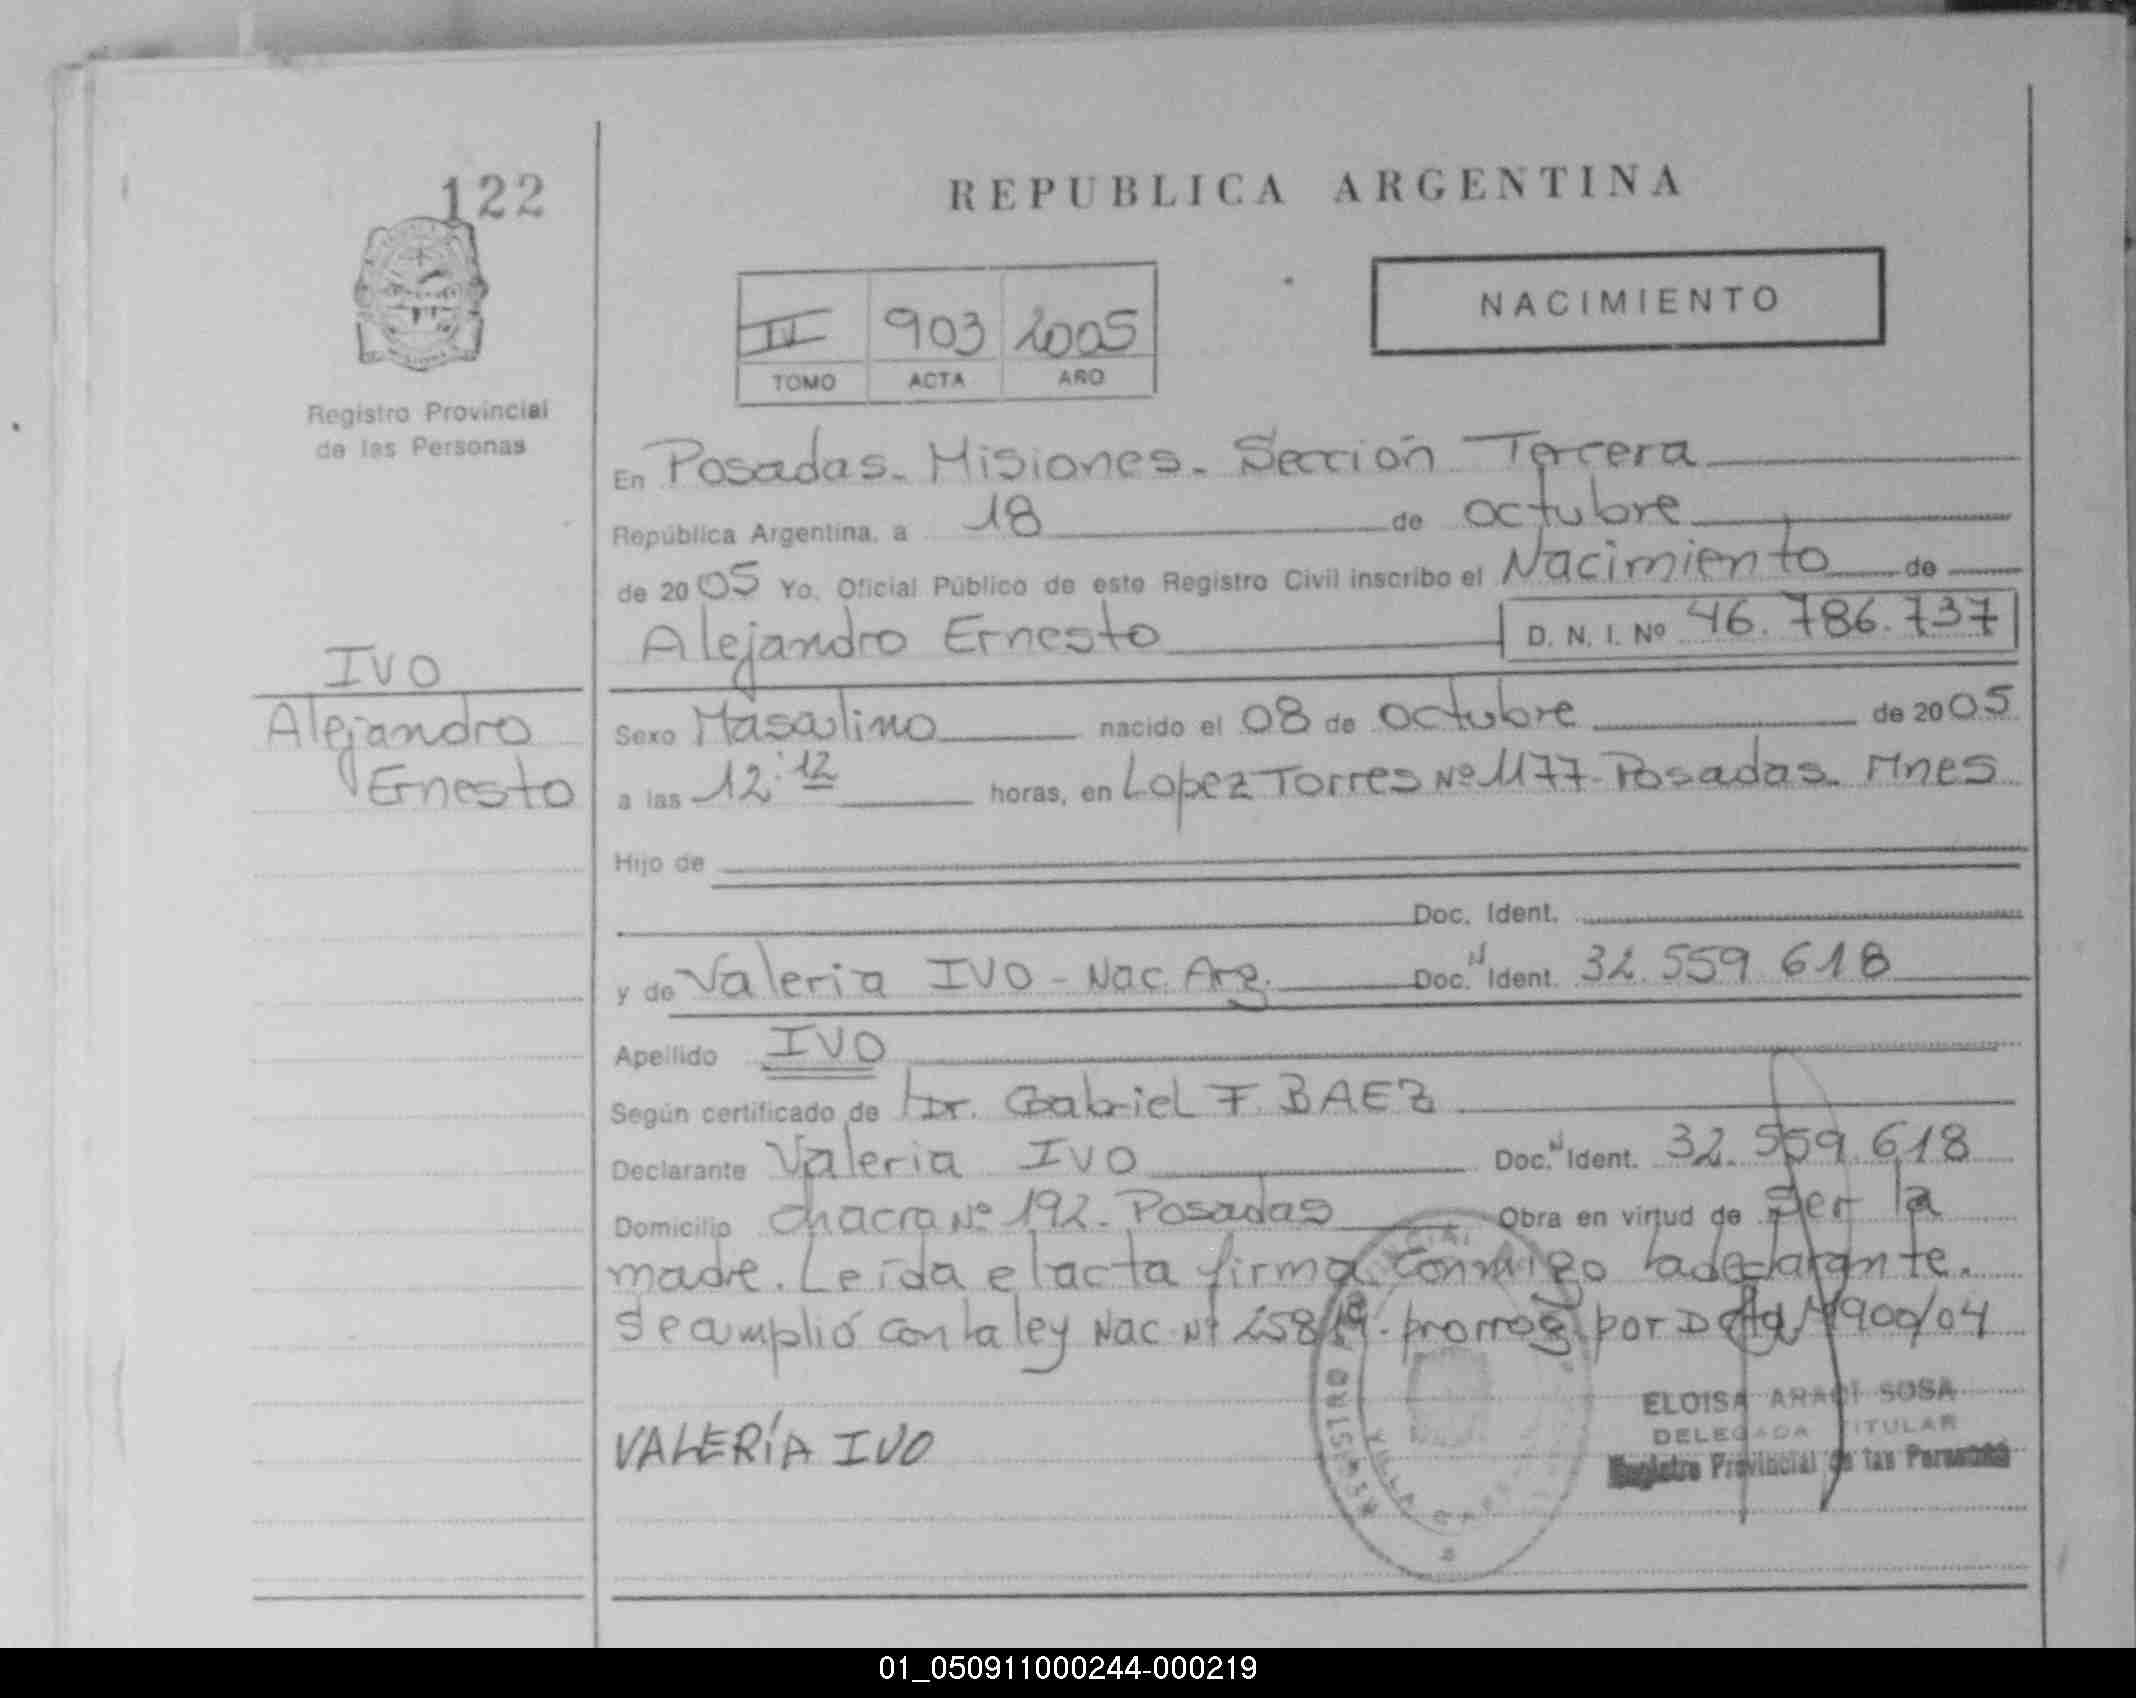 122
REPUBLICA ARGENTINA
NACIMIENTO
903 2005
TOMO ACTA AÑO
Registro Provincial
de las Personas
En Posadas. Misiones. Sección Tercera
República Argentina, a 18 de octubre
de 2005 Yo, Oficial Público de este Registro Civil inscribo el Nacimiento de
Alejandro Ernesto D. N. I. Nº 46.786.737
IVO
Alejandro
Ernesto
Sexo Masculino nacido el 08 de octubre de 2005
a las 12:12 horas, en Lopez Torres Nº 1177- Posadas. Mnes
Hijo de
Doc. Ident.
y de Valeria IVO - Nac. Arg. Doc. N Ident. 32.559.618
Apellido IVO
Según certificado de Dr. Gabriel F. BAEZ
Declarante Valeria IVO Doc. N Ident. 32.559.618
Domicilio chacra Nº 192. Posadas Obra en virtud de Ser la
madre. Leída el acta firma conmigo la declarante.
Se amplió con la ley Nac. Nº 25819. prorrog por 1900/04
ELOISA ARACI SOSA
DELEGADA TITULAR
Registro Provincial de las Personas
VALERÍA IVO
REGISTRO
VILLA
01_050911000244-000219